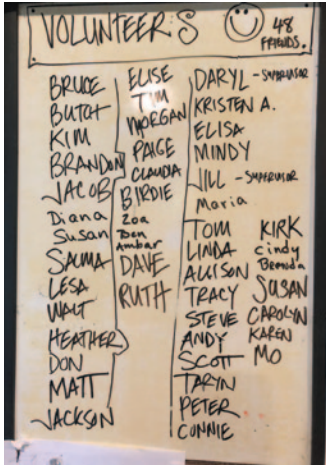 VOLUNTEERS
48
FRIENDS.
BRUCE
BUTCH
KIM
BRANDON
JACOB
Diana
Susan
SALMA
LESA
WALT
HEATHER
DON
MATT
JACKSON
ELISE
TIM
MORGAN
PAIGE
CLAUDIA
BIRDIE
Zoa
Ben
Ambar
DAVE
RUTH
DARYL - SUPERVISOR
KRISTEN A.
ELISA
MINDY
JILL - SUPERVISOR
Maria
TOM
LINDA
ALLISON
TRACY
STEVE
ANDY
SCOTT
TARYN
PETER
CONNIE
KIRK
Cindy
Brenda
SUSAN
CAROLYN
KAREN
MO